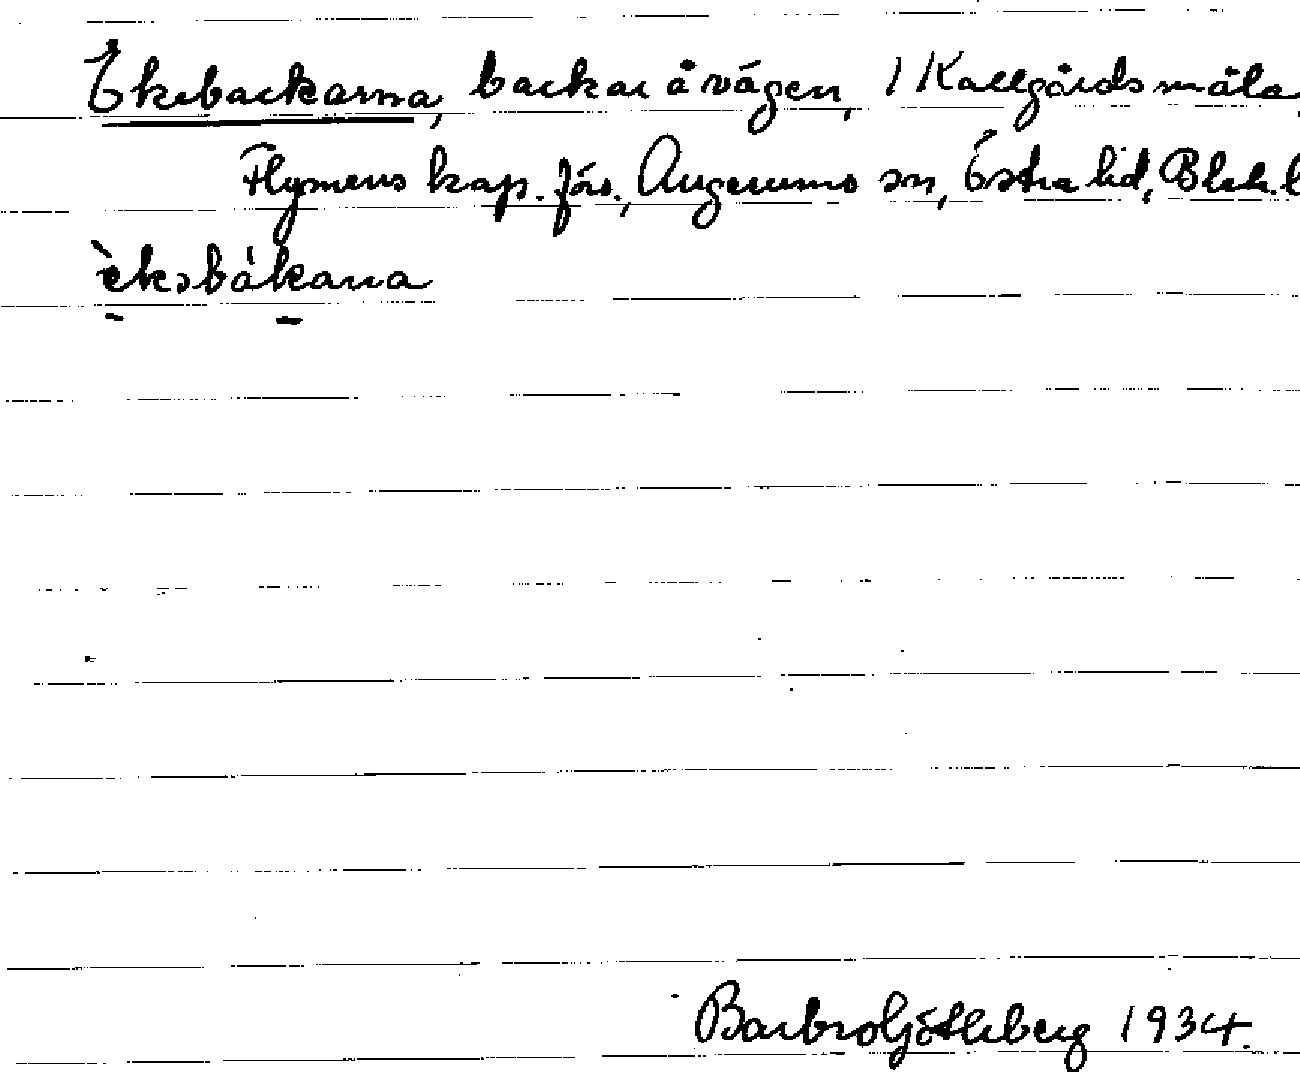 Ekebackarna, backar å vägen, 1 Kallgårdsmåla,
Flymens kap. förs., Augerums sn, Östra hd, Blek. l
èkəbákarna
Barbro Götleberg 1934.